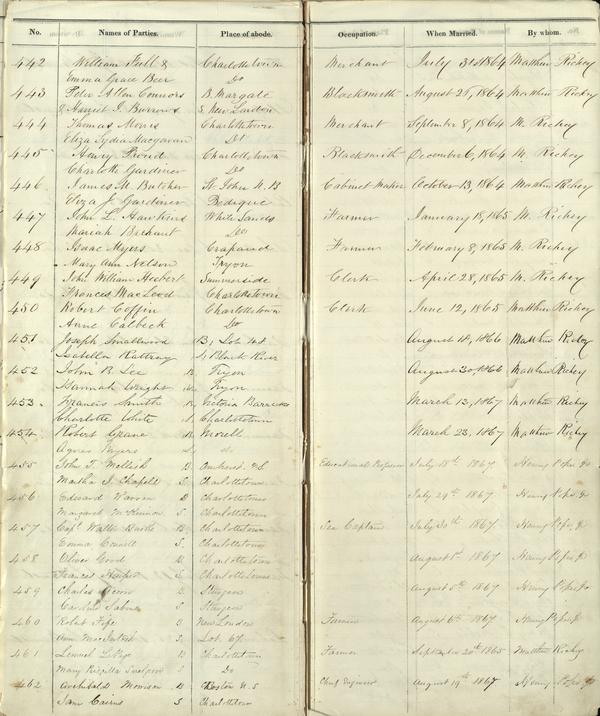 No. Names of Parties. Place of abode. Occupation. When Married. By whom.
442 William Stull & Charlottetown Merchant July 31st 1864 Matthew Richey
Emma Grace Beer Do
443 Peter Allen Connors B. Margate Blacksmith August 25, 1864 Matthew Richey
& Harriet J. Burrows S New London
444 Thomas Morris Charlottetown Merchant September 8, 1864 M. Richey
Eliza Lydia Macgowan Do
445 Henry Proud Charlottetown Blacksmith December 6, 1864 M. Richey
Charlotte Gardiner Do
446 James W. Butcher St John N.B Cabinet Maker October 13, 1864 Matthew Richey
Eliza J. Gardiner Bedeque
447 John L. Hawkins White Sands Farmer January 18, 1865 M. Richey
Mariah Brehaut Do
448 Isaac Myers Crapaud Farmer February 8, 1865 M. Richey
Mary Ann Nelson Tryon
449 John William Herbert Summerside Clerk April 28, 1865 M. Richey
Frances MacLeod Charlottetown
450 Robert Coffin Charlottetown Clerk June 12, 1865 Matthew Richey
Anne Calbeck Do
451 Joseph Smallwood B, Lot 48 August 18, 1866 Matthew Richey
Isabella Rattray S, Black River
452 John B. Lee B Tryon August 30, 1866 Matthew Richey
Hannah Wright Tryon
453 Francis Smith B, Victoria Barracks March 12, 1867 Matthew Richey
Charlotte White S Charlottetown
454 Robert Grane B Morell March 23, 1867 Matthew Richey
Agnes Myers S do
455 John T. Mellish B Amherst Educational Professor July 18th 1867 Henry Pope Jr
Martha J. Chapell S Charlottetown
456 Edward Warren B Charlottetown July 24th 1867 Henry Pope Jr
Margaret McKinnon S Charlottetown
457 Capt. Walter B Charlottetown Sea Captain July 30th 1867 Henry Pope Jr
Emma Connell S Charlottetown
458 Oliver Good B Charlottetown August 1st 1867 Henry Pope Jr
Frances Harper S Charlottetown
459 Charles B Sturgeon August 5th 1867 Henry Pope Jr
Caroline S Sturgeon
460 Robert Fife B New London Farmer August 6th 1867 Henry Pope Jr
Ann MacIntosh S, Lot 67
461 Lemuel LePage B Charlottetown Farmer September 20th 1865 Matthew Richey
Mary S Do
462 Archibald Morrison B Boston U.S Chief Engineer August 19th 1867 Henry Pope Jr
Jane Cairns S Charlottetown